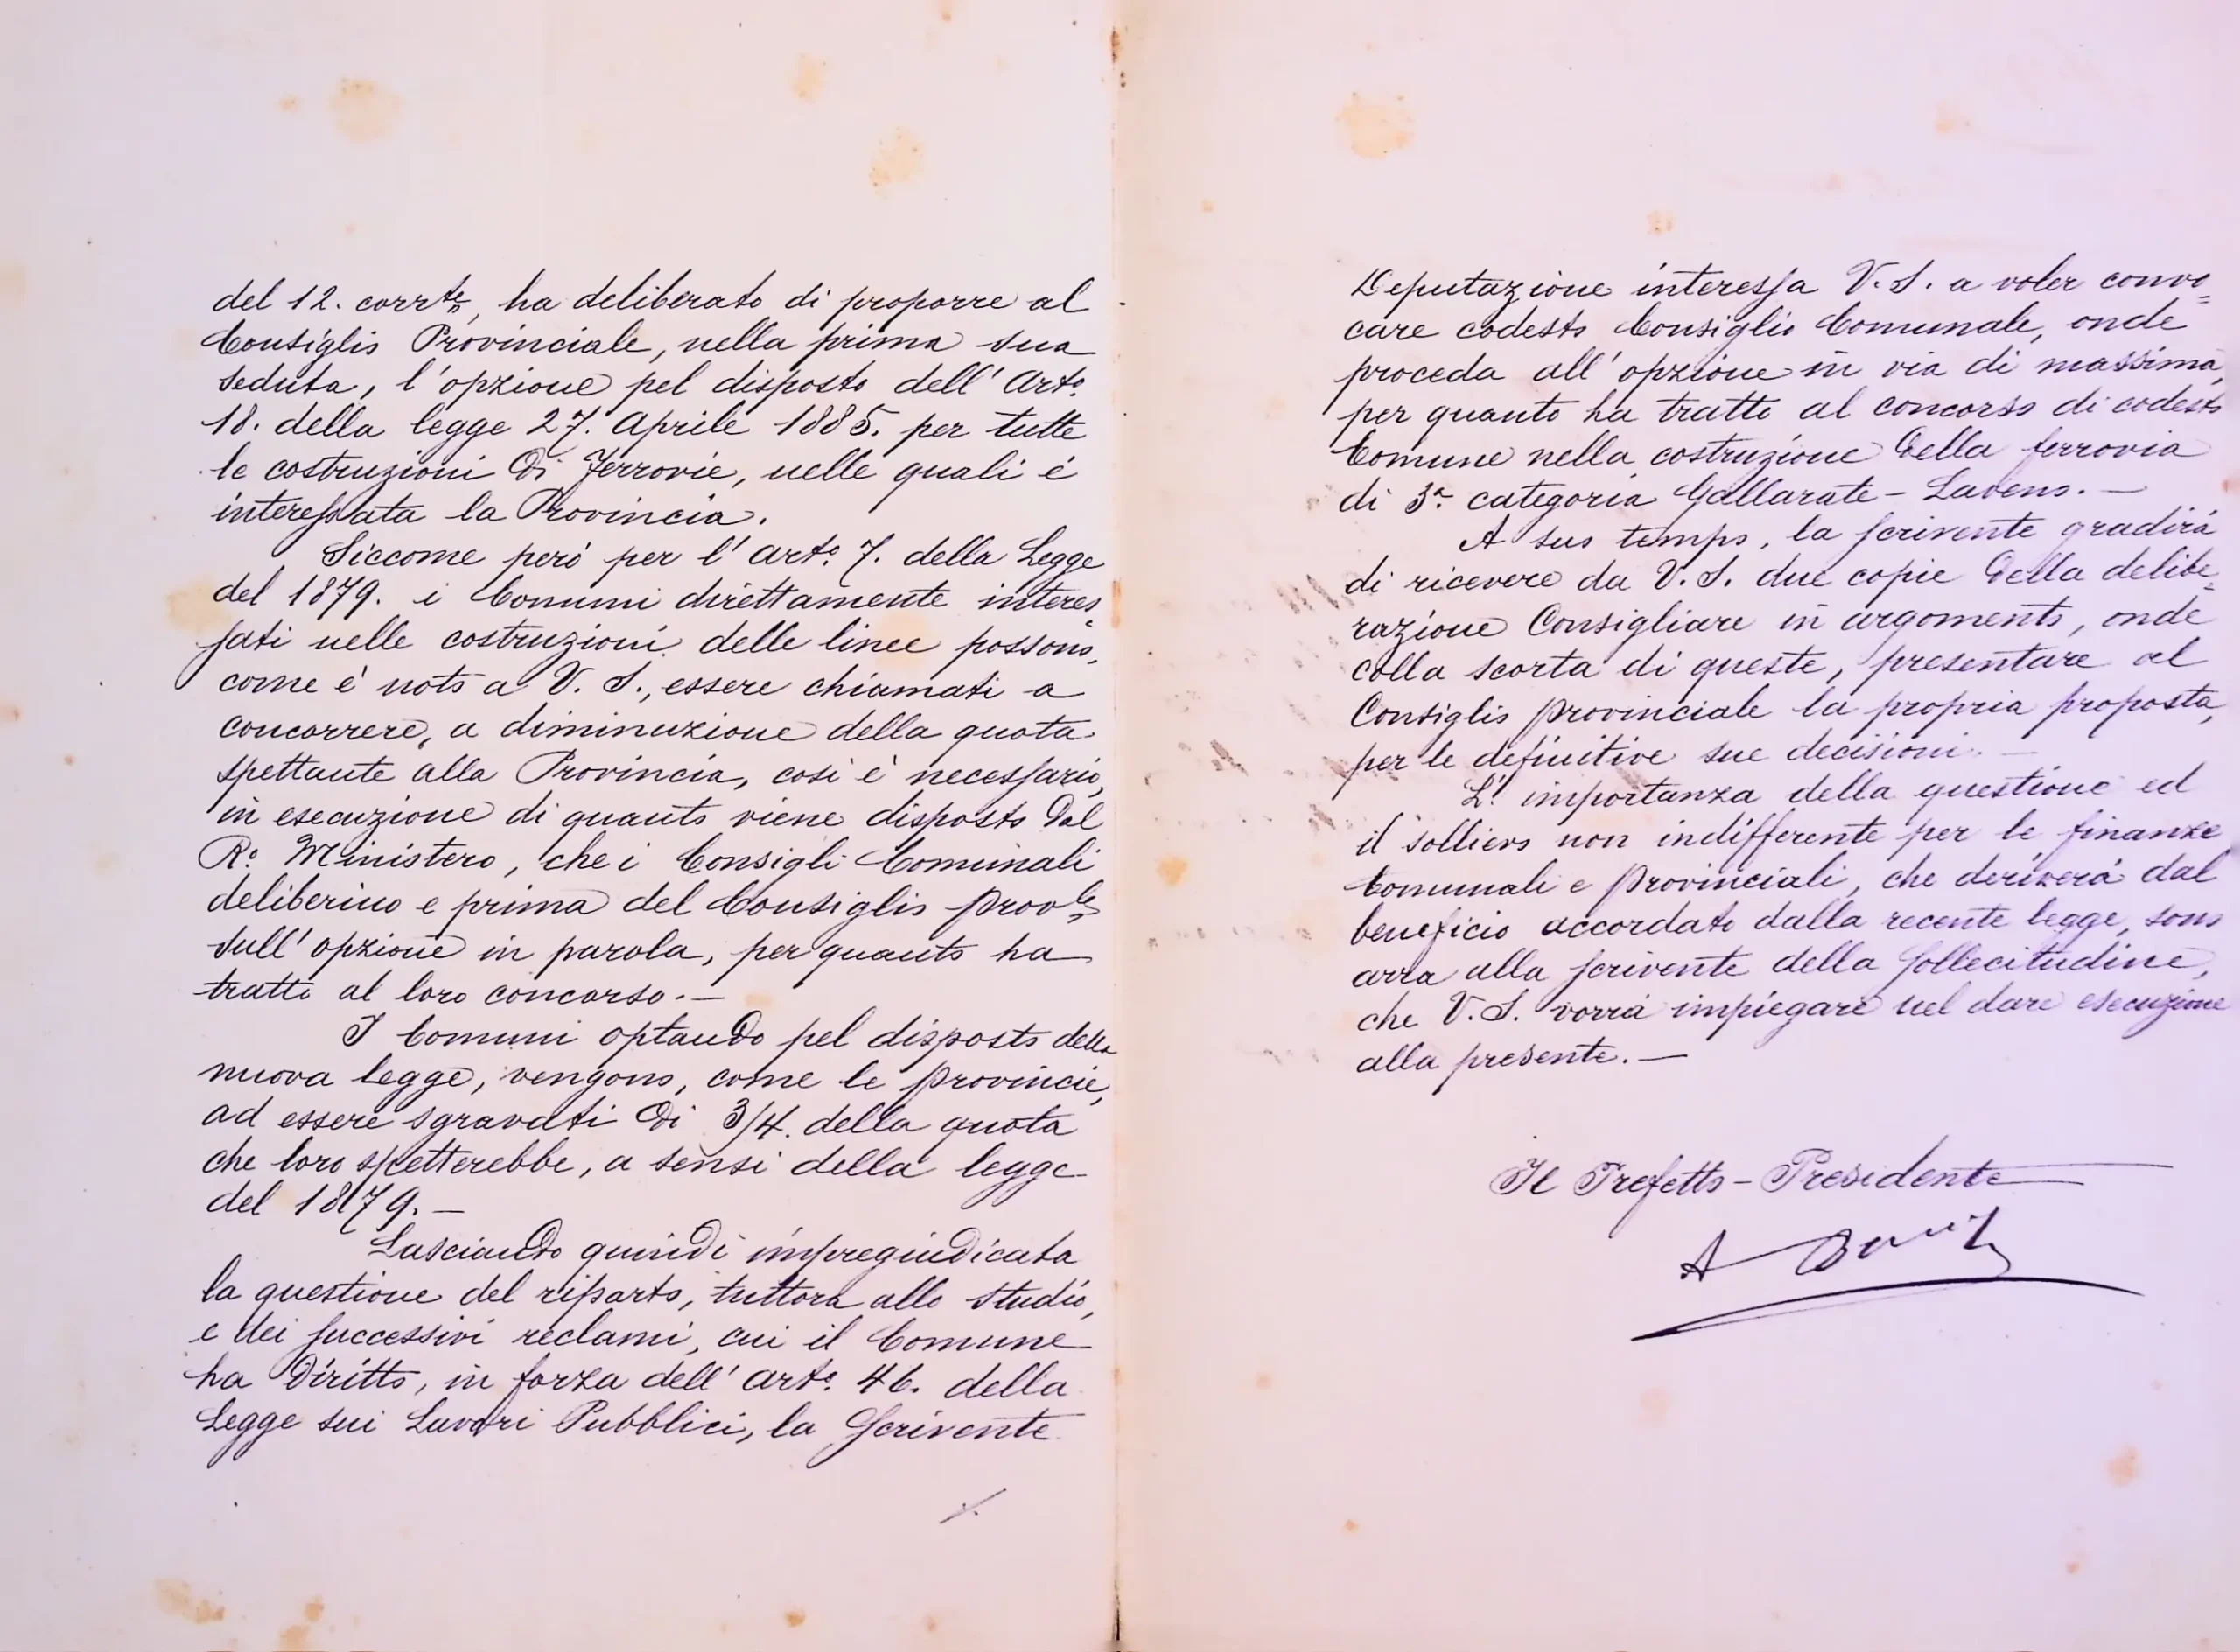 del 12. corrte, ha deliberato di proporre al
Consiglio Provinciale, nella prima sua
seduta, l'opzione pel disposto dell' Arto.
18. della legge 27. Aprile 1885. per tutte
le costruzioni di Ferrovie, nelle quali è
interessata la Provincia.
Siccome però per l' arto. 7. della Legge
del 1879. i Comuni direttamente interes=
sati nelle costruzioni delle linee possono,
come è noto a V. S., essere chiamati a
concorrere, a diminuzione della quota
spettante alla Provincia, così è necessario,
in esecuzione di quanto viene disposto dal
Ro. Ministero, che i Consigli Comunali
deliberino e prima del Consiglio provle
sull' opzione in parola, per quanto ha
tratto al loro concorso. —
I Comuni optando pel disposto della
nuova legge, vengono, come le provincie,
ad essere sgravati di 3/4. della quota
che loro spetterebbe, a sensi della legge
del 1879. —
Lasciando quindi impregiudicata
la questione del riparto, tuttora allo studio,
e dei successivi reclami, cui il Comune
ha diritto, in forza dell' arto. 46. della
Legge sui Lavori Pubblici, la Scrivente
./.
Deputazione interessa V. S. a voler convo=
care codesto Consiglio Comunale, onde
proceda all' opzione in via di massima,
per quanto ha tratto al concorso di codesto
Comune nella costruzione della ferrovia
di 3a. categoria Gallarate - Laveno. —
A suo tempo, la scrivente gradirà
di ricevere da V. S. due copie della delibe=
razione Consigliare in argomento, onde
colla scorta di queste, presentare al
Consiglio provinciale la propria proposta,
per le definitive sue decisioni. —
L' importanza della questione ed
il sollievo non indifferente per le finanze
Comunali e provinciali, che deriverà dal
beneficio accordato dalla recente legge, sono
arra alla scrivente della sollecitudine,
che V. S. vorrà impiegare nel dare esecuzione
alla presente. —
Il Prefetto - Presidente